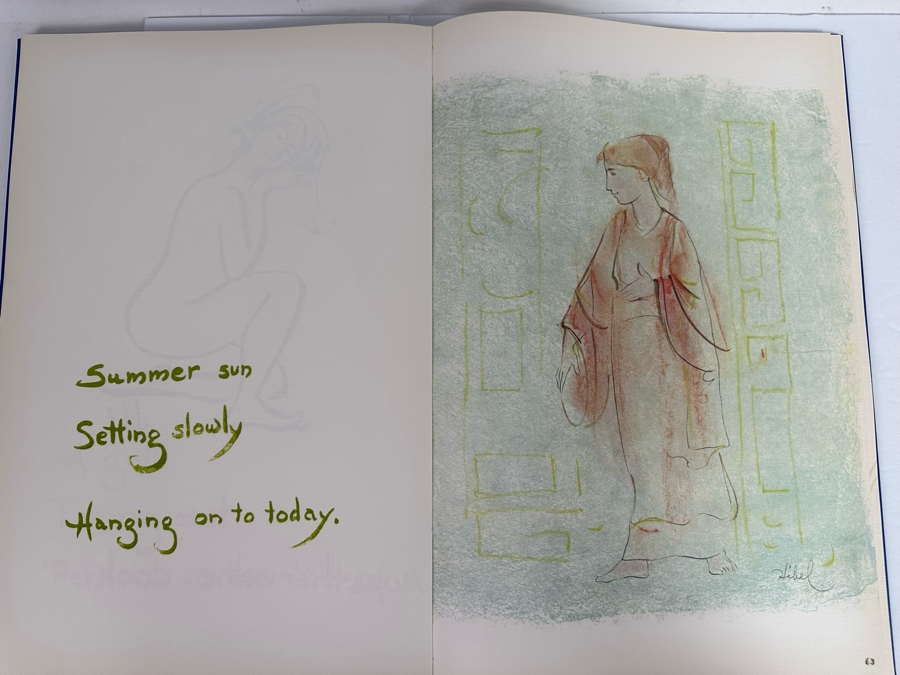 Summer sun
Setting slowly
Hanging on to today.
Hibel
63